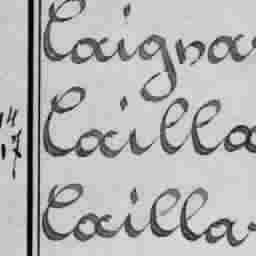 Caigna
Cailla
17
Cailla